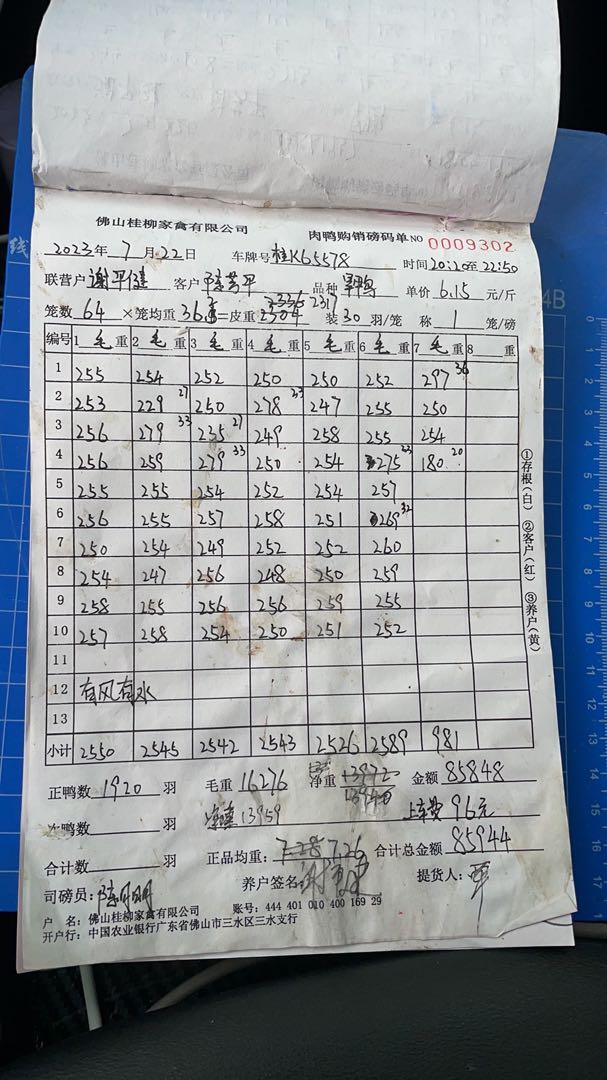 佛山桂柳家禽有限公司 肉鸭购销磅码单 NO 0009302
2023年 7月22日 车牌号 桂K65578 时间 20:20至22:50
联营户 谢平健 客户 品种 单价 6.15 元/斤
笼数 64 ×笼均重 36 =皮重 2304 2317 装 30 羽/笼 称 1 笼/磅
编号 1 毛重 2 毛重 3 毛重 4 毛重 5 毛重 6 毛重 7 毛重 8 重
1 255 254 252 250 250 252 297 36
2 253 229 27 250 278 33 247 255 250
3 256 279 33 235 27 249 258 255 254
4 256 259 279 33 250 254 275 180 20
5 255 255 254 252 254 257
6 256 255 257 258 251 269 32
7 250 254 249 252 252 260
8 254 247 256 248 250 259
9 258 255 256 256 259 255
10 257 258 254 250 251 252
11
12 有风有水
13
小计 2550 2545 2542 2543 2526 2589 981
正鸭数 1920 羽 毛重 16276 净重 金额 85848
次鸭数 羽 13959 上车费 96元
合计数 羽 正品均重: 7.26 合计总金额 85944
司磅员: 养户签名: 提货人:
户 名: 佛山桂柳家禽有限公司 账号: 444 401 010 400 169 29
开户行: 中国农业银行广东省佛山市三水区三水支行
①存根(白) ②客户(红) ③养户(黄)
线
4B
0 1 2 3 4 5 6 7 8 9 10 11 12 13 14 15 16 17